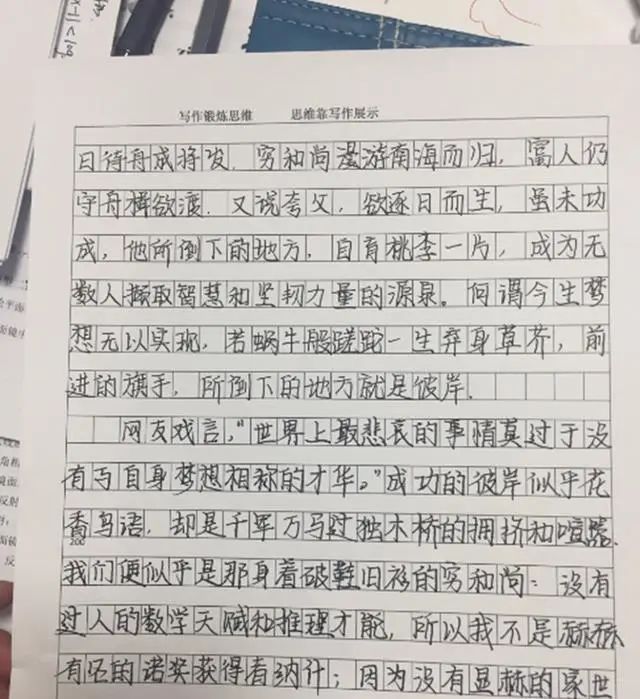 写作锻炼思维 思维靠写作展示
日待舟成将发.穷和尚漫游南海而归,富人仍
守舟楫欲渡.又说夸父,欲逐日而生,虽未功
成,他所倒下的地方,自育桃李一片,成为无
数人撷取智慧和坚韧力量的源泉。何谓今生梦
想无以实现,若蜗牛般蹉跎一生弃身草芥,前
进的旗手,所倒下的地方就是彼岸.
网友戏言,"世界上最悲哀的事情莫过于没
有与自身梦想相称的才华。"成功的彼岸似乎花
香鸟语,却是千军万马过独木桥的拥挤和喧嚣.
我们便似乎是那身着破鞋旧衫的穷和尚:没有
过人的数学天赋和推理才能,所以我不是赫赫
有名的诺奖获得者纳什;因为没有显赫的家世